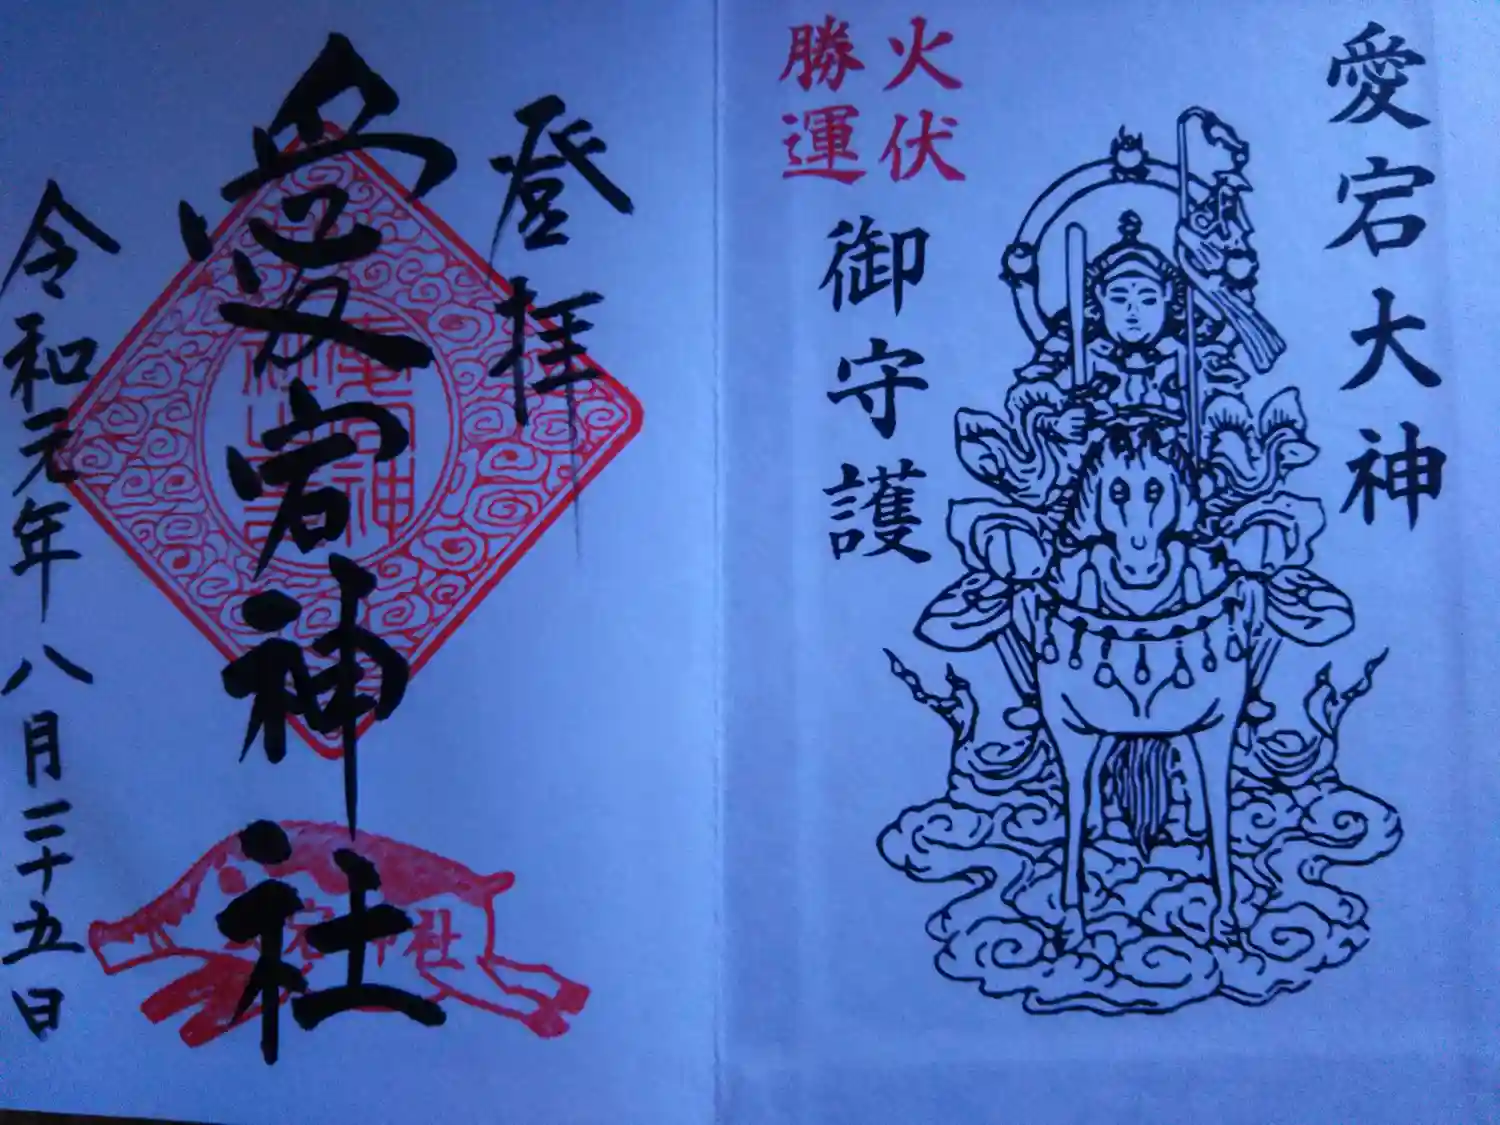 愛宕大神
火伏
勝運
御守護
登拝
愛宕神社
令和元年八月二十五日